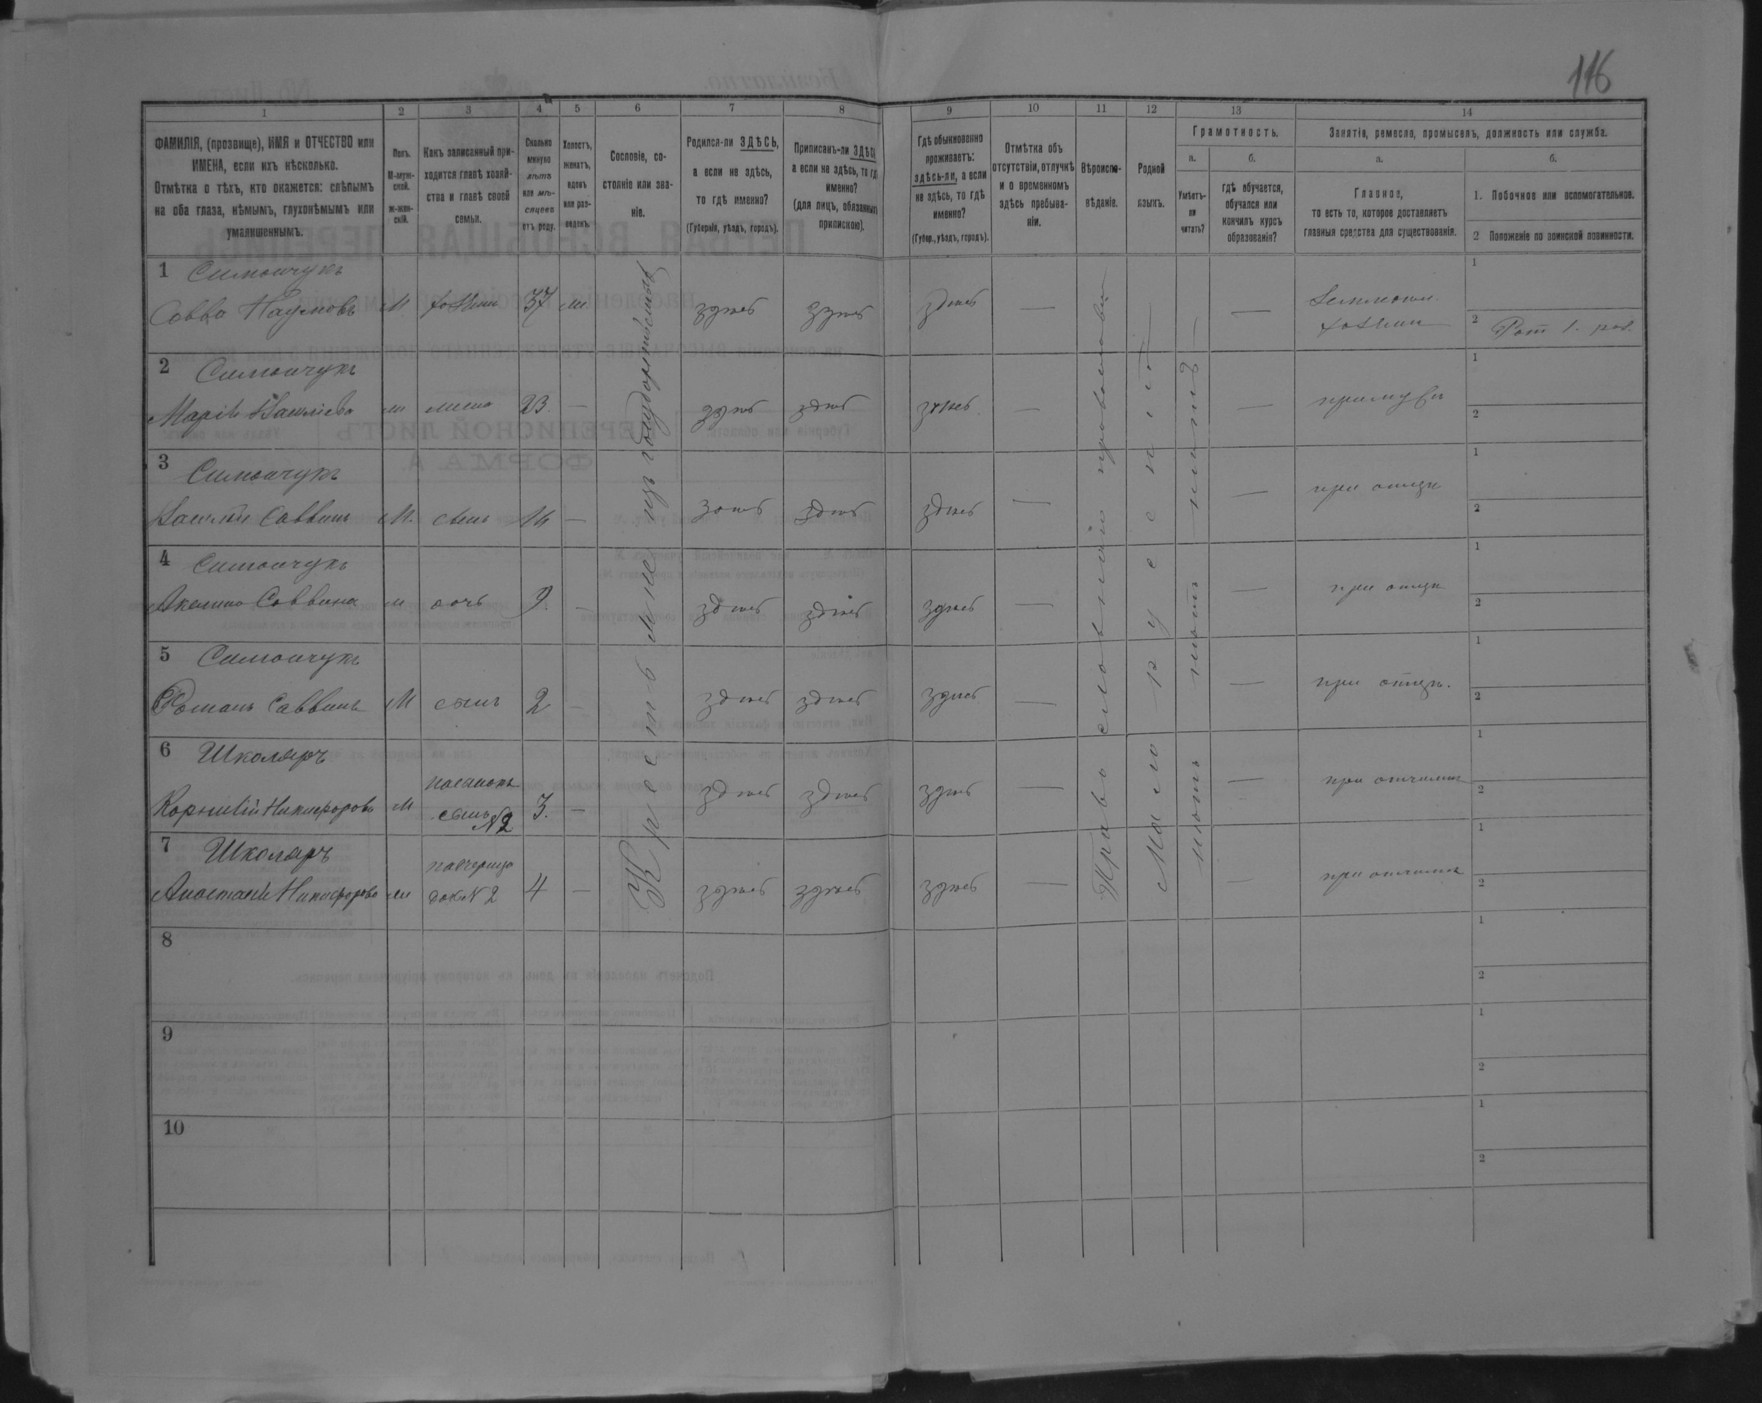 116
1 2 3 4 5 6 7 8 9 10 11 12 13 14
ФАМИЛІЯ, (прозвище), ИМЯ и ОТЧЕСТВО или
ИМЕНА, если ихъ нѣсколько.
Отмѣтка о тѣхъ, кто окажется: слѣпымъ
на оба глаза, нѣмымъ, глухонѣмымъ или
умалишеннымъ.
Полъ.
М-муж-
ской.
ж-жен-
скій.
Какъ записанный при-
ходится главѣ хозяй-
ства и главѣ своей
семьи.
Сколько
минуло
лѣтъ
или мѣ-
сяцевъ
отъ роду.
Холостъ,
женатъ,
вдовъ
или раз-
веденъ.
Сословіе, со-
стояніе или зва-
ніе.
Родился-ли ЗДѢСЬ,
а если не здѣсь,
то гдѣ именно?
(Губернія, уѣздъ, городъ).
Приписанъ-ли ЗДѢСЬ,
а если не здѣсь, то гдѣ
именно?
(для лицъ, обязанныхъ
припискою).
Гдѣ обыкновенно
проживаетъ:
здѣсь-ли, а если
не здѣсь, то гдѣ
именно?
(Губер., уѣздъ, городъ).
Отмѣтка объ
отсутствіи, отлучкѣ
и о временномъ
здѣсь пребыва-
ніи.
Вѣроиспо-
вѣданіе.
Родной
языкъ.
Грамотность.
а.
Умѣетъ-
ли
читать?
б.
гдѣ обучается,
обучался или
кончилъ курсъ
образованія?
Занятіе, ремесло, промыселъ, должность или служба.
а.
Главное,
то есть то, которое доставляетъ
главныя средства для существованія.
б.
1. Побочное или вспомогательное.
2 Положеніе по воинской повинности.
1 Симончукъ
Савва Наумовъ М 37 здѣсь здѣсь здѣсь —
2 Симончукъ
Марія ж жена 23 — здѣсь здѣсь здѣсь —
3 Симончукъ
Саввинъ М. сынъ 14 — здѣсь здѣсь здѣсь — при отцѣ
4 Симончукъ
Акелина Саввина ж дочь 9 — здѣсь здѣсь здѣсь — при отцѣ
5 Симончукъ
Романъ Саввинъ М сынъ 2 — здѣсь здѣсь здѣсь — при отцѣ.
6 Школяръ
Корнилій Никифоровъ М сынъ №2 3. — здѣсь здѣсь здѣсь — при отчимѣ
7 Школяръ
Анастасія Никифорова ж падчерица
дочь №2 4 — здѣсь здѣсь здѣсь — при отчимѣ
Православный
Малорусскій
8
9
10